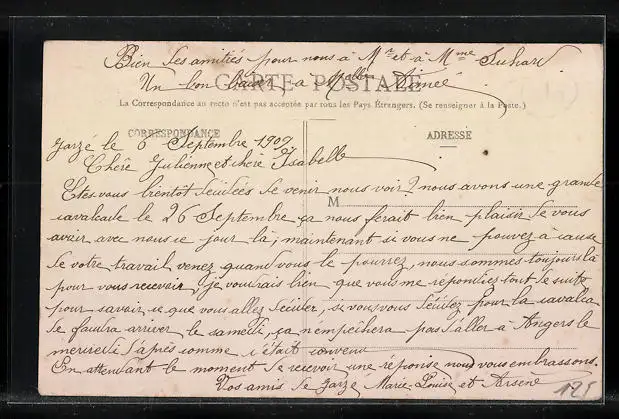 Bien des amitiés pour nous à Mr et à Mme Suhard
Un bon baiser à Melle Aimée
CARTE POSTALE
La Correspondance au recto n'est pas acceptée par tous les Pays Étrangers. (Se renseigner à la Poste.)
CORRESPONDANCE
ADRESSE
Jarzé le 6 Septembre 1909
Chère Julienne et chère Isabelle
Etes vous bientôt décidées de venir nous voir? nous avons une grande
M
cavalcade le 26 Septembre, ça nous ferait bien plaisir de vous
avoir avec nous ce jour là; maintenant si vous ne pouvez à cause
de votre travail venez quand vous le pourrez, nous sommes toujours là
pour vous recevoir, je voudrais bien que vous me répondiez tout de suite
pour savoir ce que vous allez décider; si vous vous décidez pour la cavalca
de faudra arriver le samedi, ça n'empeichera pas d'aller à Angers le
mercredi d'après comme c'était convenu
En attendant le moment de recevoir une réponse nous vous embrassons.
Vos amis de Jarzé Marie-Louise et Arsène
125